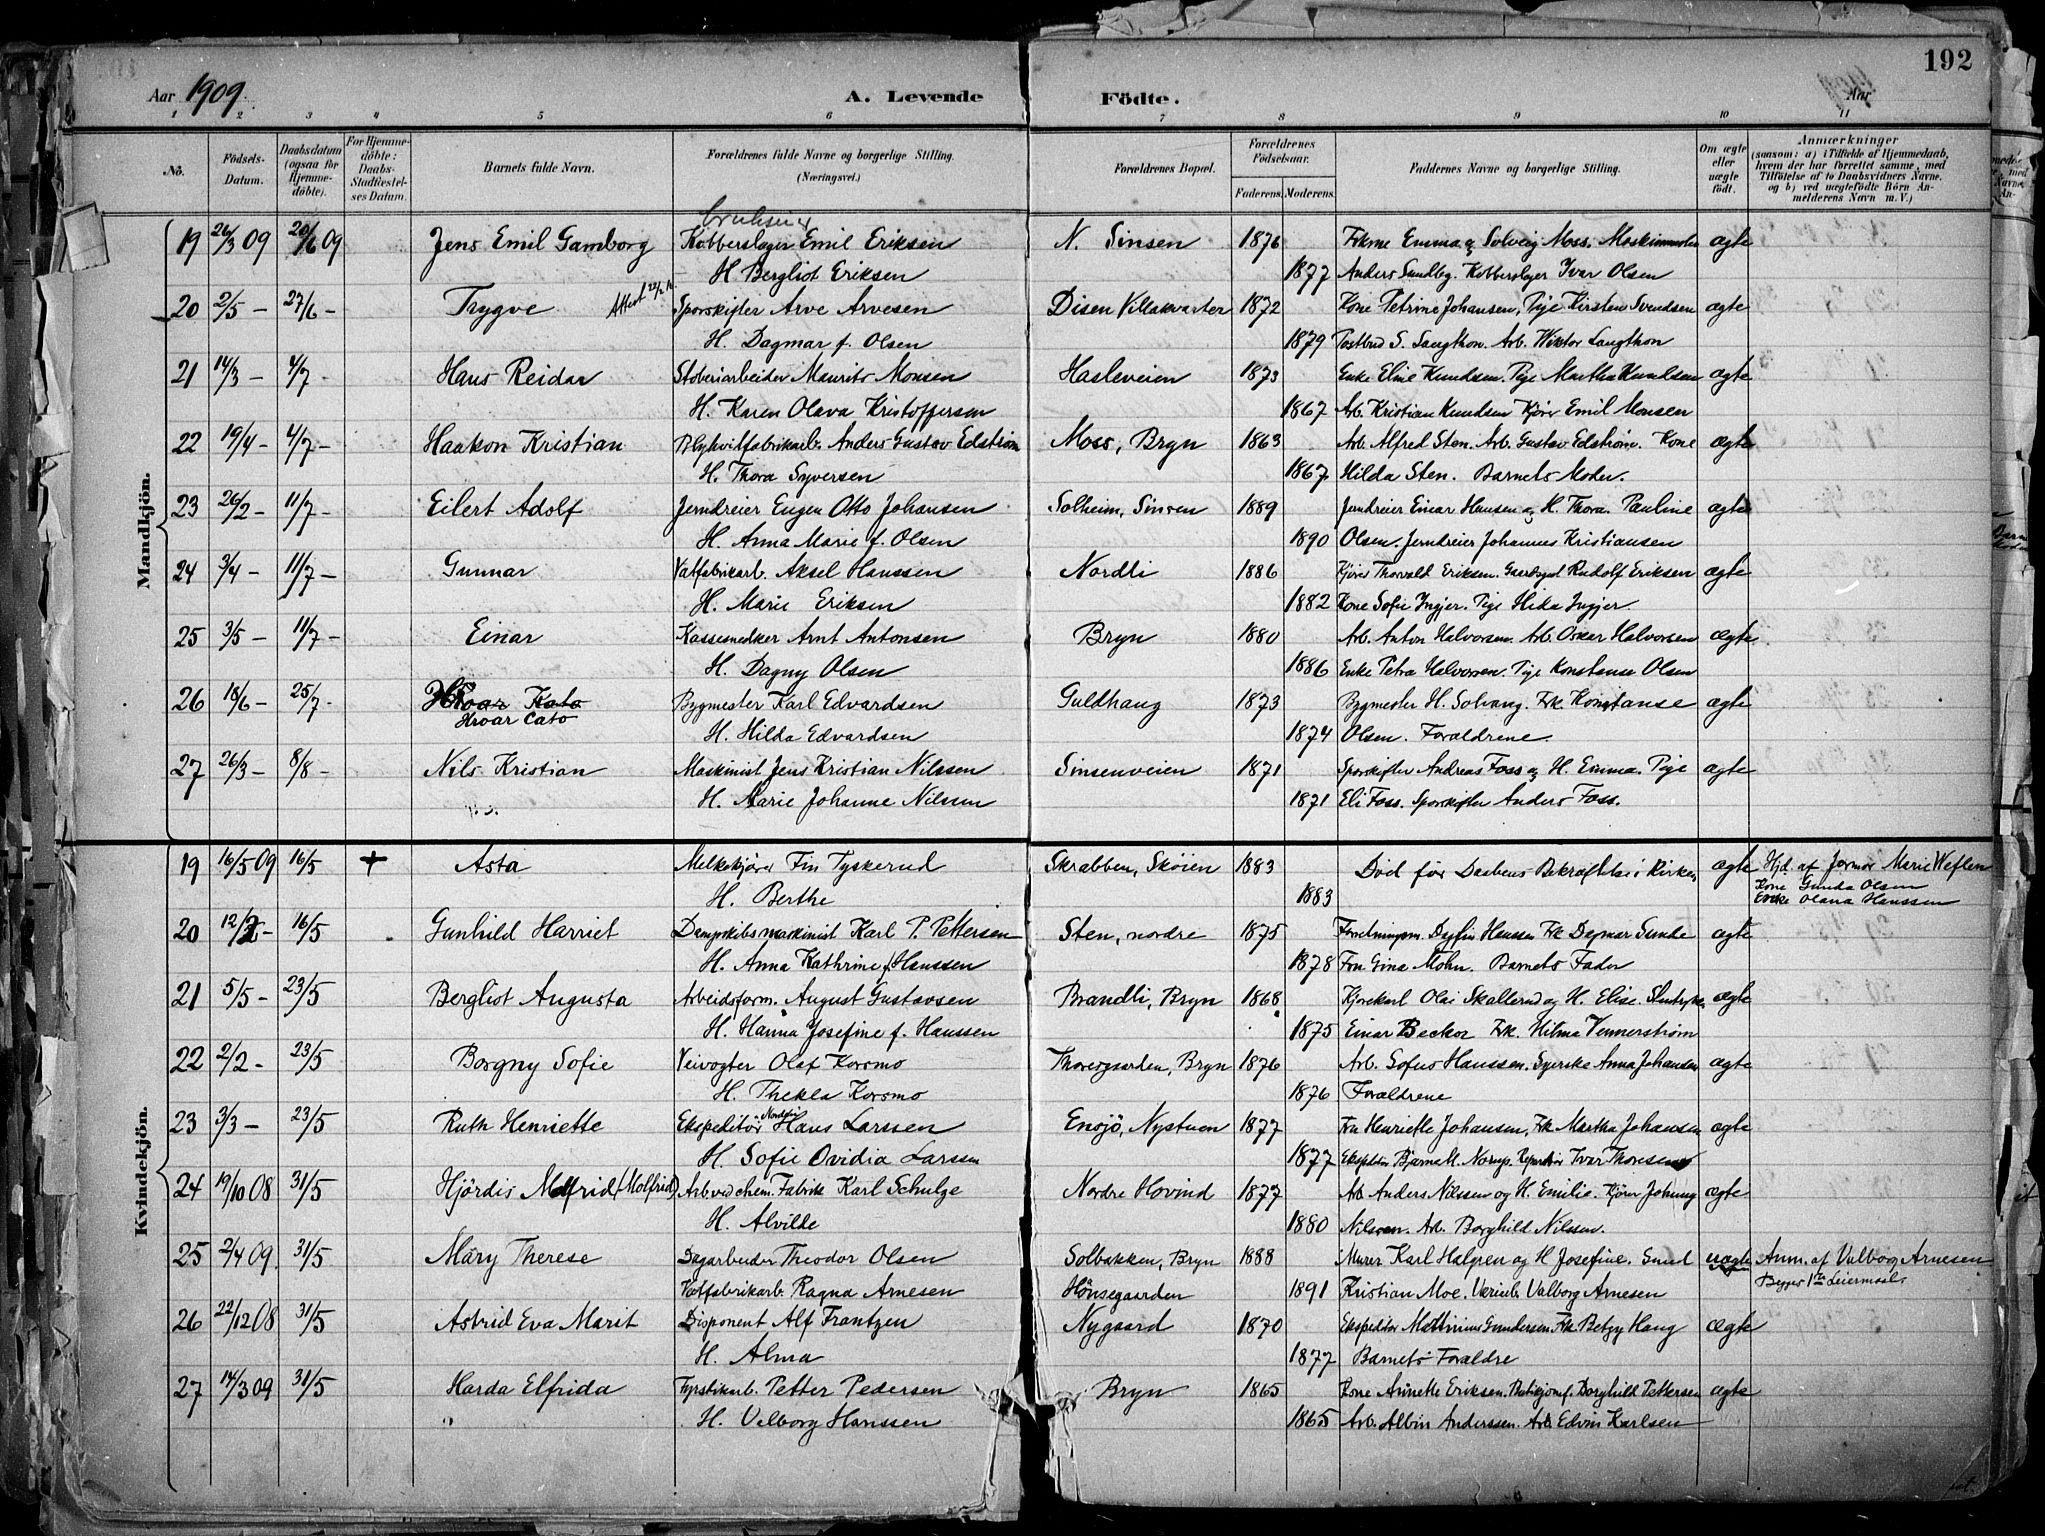 192
Aar 1909. A. Levende Födte. Aar
1 2 3 4 5 6 7 8 9 10 11
No. Födsels-Datum. Daabsdatum (ogsaa for Hjemme-döbte). For Hjemme-döbte: Daabs-Stadfæstel-ses Datum. Barnets fulde Navn. Forældrenes fulde Navne og borgerlige Stilling. (Næringsvei.) Forældrenes Bopæl. Forældrenes Födselsaar. Faderens. Moderens. Faddernes Navne og borgerlige Stilling. Om ægte eller uægte födt. Anmærkninger (saasom: a) i Tilfælde af Hjemmedaab, hvem der har forrettet samme, med Tilföielse af to Daabsvidners Navne, og b) ved uægtefödte Börn An-melderens Navn m. V.)
Mandkjön.
19 26/3 09 20/6 09 Jens Emil Gamborg Kobberslager Emil Eriksen N. Sinsen 1876 Frkrne Emma og Solveig Moss. Maskinmester ægte
H. Bergliot Eriksen 1877 Anders Sundbg. Kobberslager Ivar Olsen
20 2/5 - 27/6 - Trygve Attest Sporskifter Arve Arvesen Disen Villakvarter 1872 Kone Petrine Johansen, Pige Kirsten Svendsen ægte
H. Dagmar f. Olsen 1879 Postbud S. Langthon. Arb. Wiktor Langthon
21 14/3 - 4/7 - Hans Reidar Støberiarbeider Maurits Monsen Hasleveien 1873 Enke Eline Knudsen. Pige Martha Knudsen ægte
H. Karen Olava Kristoffersen 1867 Arb. Kristian Knudsen Kjører Emil Monsen
22 19/4 - 4/7 - Haakon Kristian Blyhvitfabrikarb. Anders Gustav Edström Moss, Bryn 1863 Arb. Alfred Sten. Arb. Gustav Edstrøm. Kone ægte
H. Thora Syversen 1867 Hilda Sten. Barnets Moder.
23 26/2 - 11/7 - Eilert Adolf Jerndreier Eugen Otto Johansen Solheim, Sinsen 1889 Jerndreier Einar Hansen og H. Thora. Pauline ægte
H. Anna Marie f. Olsen 1890 Olsen. Jerndreier Johannes Kristiansen
24 3/4 - 11/7 - Gunnar Vatfabrikarb. Aksel Hanssen Nordli 1886 Kjører Thorvald Eriksen. Gaardsgut Rudolf Eriksen ægte
H. Marie Eriksen 1882 Kone Sofie Ingjer. Pige Hilda Ingjer.
25 3/5 - 11/7 - Einar Kassesnedker Arnt Antonsen Bryn 1880 Arb. Anton Halvorsen. Arb. Oskar Halvorsen ægte
H. Dagny Olsen 1886 Enke Petra Halvorsen. Pige Konstanse Olsen
26 18/6 - 25/7 - Hroar Kato Bygmester Karl Edvardsen Guldhaug 1873 Bygmester H. Solvang. Frk. Konstanse ægte
Hroar Cato H. Hilda Edvardsen 1874 Olsen. Forældrene.
27 26/3 - 8/8 - Nils Kristian Maskinist Jens Kristian Nilssen Sinsenveien 1871 Sporskifter Andreas Foss og H. Emma. Pige ægte
H. Marie Johanne Nilssen 1871 Eli Foss. Sporskifter Anders Foss.
Kvindekjön.
19 16/5 09 16/5 + Asta Melkekjører Fin Tyskerud Skrabben, Skøien 1883 Død før Daabens Bekræftelse i Kirken ægte Hjd. af Jormor Marie Weflen
H. Berthe 1883 Kone Gunda Olsen
Enke Olana Hanssen
20 12/2 - 16/5 Gunhild Harriet Dampskibsmaskinist Karl P. Pettersen Sten, nordre 1875 Forretningsm. Dyfin Hanssen Frk Dagmar Sunde ægte
H. Anna Kathrine f. Hanssen 1878 Fru Gina Mohn. Barnets Fader
21 5/5 - 23/5 Bergliot Augusta Arbeidsform. August Gustavsen Brandli, Bryn 1868 Kjørekarl Olai Skallerud og H. Elise. ægte
H. Hanna Josefine f. Hanssen 1875 Einar Becker Frk. Hilma Vennerstrøm
22 2/2 - 23/5 Borgny Sofie Veivogter Olaf Korsmo Thoresgaarden, Bryn 1876 Arb. Sofus Hanssen. Syerske Anna Johansen ægte
H. Thekla Korsmo 1876 Forældrene
23 3/3 - 23/5 Ruth Henriette Ekspeditör Hans Larssen Ensjö, Nystuen 1877 Fru Henriette Johansen, Frk Martha Johansen ægte
H. Sofie Ovidia Larssen 1877 Ekspeditør Bjarne M. Norup. Reparatør Ivar Thoresen
24 19/10 08 31/5 Hjördis Molfrid (Molfrid) Arb. ved chem. Fabrik Karl Schulze Nordre Hovind 1877 Arb. Anders Nilssen og H. Emilie. Kjører Johnny ægte
H. Alvilde 1880 Nilssen. Arb. Borghild Nilssen.
25 2/4 09 31/5 Mary Therese Dagarbeider Theodor Olsen Solbakken, Bryn 1888 Murer Karl Halgren og H. Josefine. Smed uægte Anm. af Valborg Arnesen
Vatfabrikarb. Ragna Arnesen Hönsegaarden 1891 Kristian Moe. Valborg Arnesen Begges 1ste Leiermaal
26 22/12 08 31/5 Astrid Eva Marit Disponent Alf Frantzen Nygaard 1870 Ekspeditør Mathinius Gundersen. Frk. Betzy Haug Ægte
H. Alma 1877 Barnets Forældre
27 14/3 09 31/5 Harda Elfrida Fyrstikarb. Petter Pedersen Bryn 1865 Kone Annette Eriksen. Butikjomf. Borghild Pettersen ægte
H. Valborg Hanssen 1865 Arb. Albin Anderssen. Arb. Edvin Karlsen